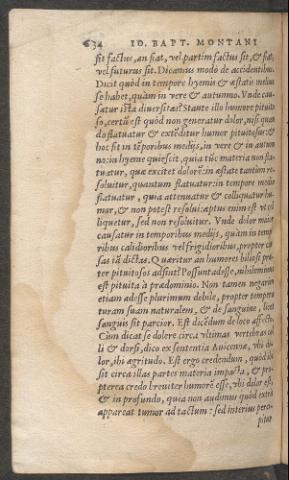 634 IO. BAPT. MONTANI
sit factus, an fiat, vel partim factus sit, & fiat,
vel futurus sit. Dicamus modò de accidentibus.
Dicit quòd in tempore hyemis & æstate melius
se habet, quàm in vere & autumno. Vnde cau-
satur ista diuersitas? Stante illo humore pituito
so, certũ est quòd non generatur dolor, nisi quan
do flatuatur & extẽditur humor pituitosus: &
hoc fit in tẽporibus medijs, in vere & in autum
no: in hyeme quiescit, quia tũc materia non fla-
tuatur, quæ excitet dolorẽ: in æstate tantùm re-
soluitur, quantum flatuatur: in tempore medio
flatuatur, quia attenuatur & colliquatur hu-
mor, & non potest resolui: aptus enim est vt col
liquetur, sed non resoluitur. Vnde dolor maior
causatur in temporibus medijs, quàm in tem-
ribus calidioribus vel frigidioribus, propter cau
sas iã dictas. Quæritur an humores biliosi præ-
ter pituitosos adsint? Possunt adesse, nihilominus
est pituita à prædominio. Non tamen negarim
etiam adesse plurimum debile, propter tempera
turam suam naturalem, & de sanguine, licet
sanguis sit parcior. Est dicẽdum de loco affecto.
Cùm dicat se dolere circa vltimas vertebras col
li & dorsi, dico ex sententia Auicennæ, vbi do-
lor, ibi ægritudo. Est ergo credendum, quòd ibi
sit circa illas partes materia impacta, & pro-
pterea credo breuiter humorẽ esse, vbi dolor est,
& in profundo, quia non audimus quòd extrà
appareat tumor ad tactum: sed interius perci-
pitur